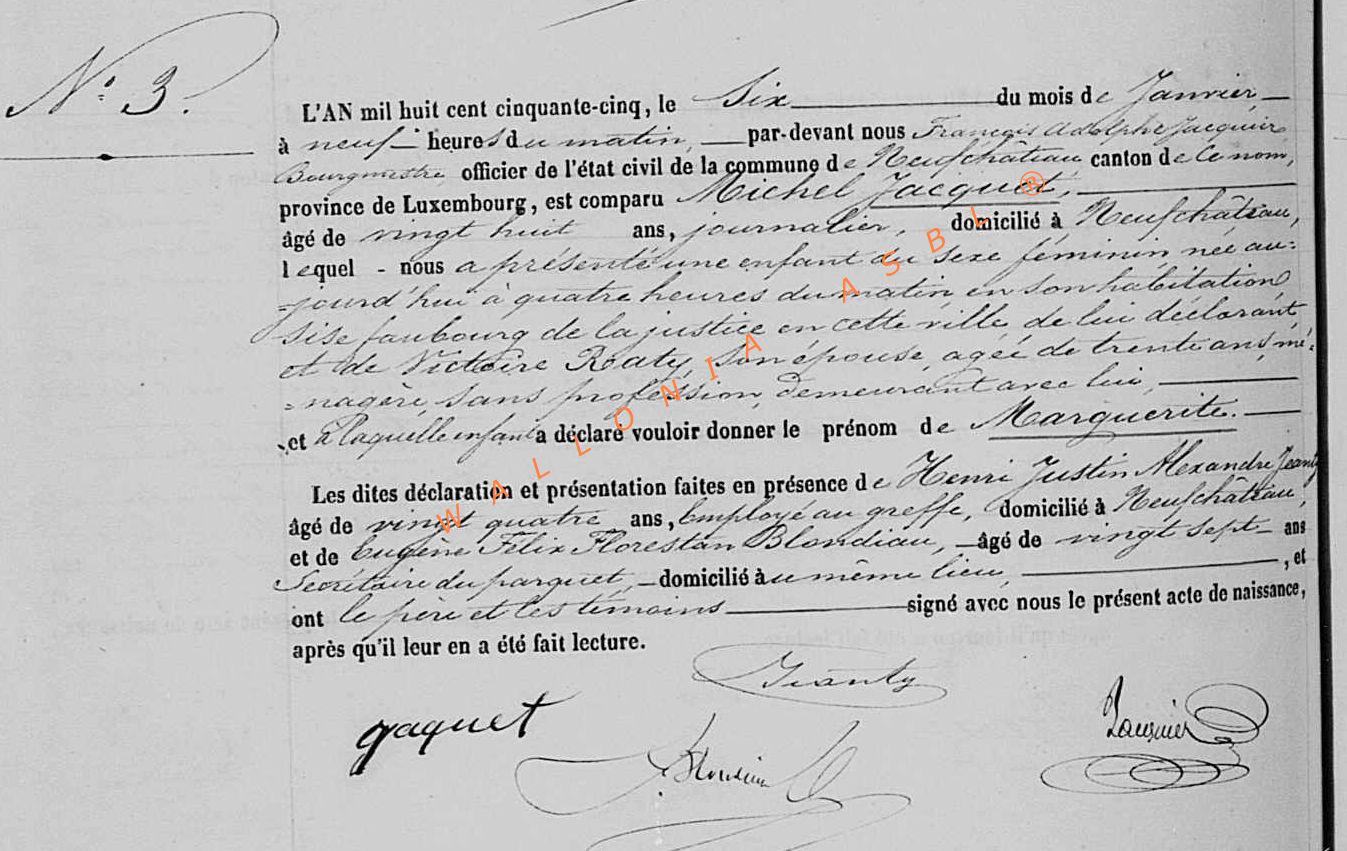 N° 3.
L'AN mil huit cent cinquante-cinq, le Six du mois de Janvier
à neuf heures du matin, par-devant nous François Adolphe Jacquier
Bourgmestre, officier de l'état civil de la commune de Neufchâteau canton de ce nom,
province de Luxembourg, est comparu Michel Jacquet,
âgé de vingt huit ans, journalier, domicilié à Neufchâteau,
lequel - nous a présenté une enfant du sexe féminin née au=
=jourd'hui à quatre heures du matin en son habitation
sise faubourg de la justice en cette ville de lui déclarant
et de Victoire Reaty, son épouse, agée de trente ans, mé=
=nagère, sans profession, demeurant avec lui,
et à laquelle enfant a déclaré vouloir donner le prénom de Marguerite.
Les dites déclaration et présentation faites en présence de Henri Justin Alexandre Jeanty
âgé de vingt quatre ans, Employé au greffe, domicilié à Neufchâteau,
et de Eugène Félix Florestan Blondiau, âgé de vingt sept ans
Secrétaire du parquet, domicilié au même lieu, , et
ont le père et les témoins signé avec nous le présent acte de naissance,
après qu'il leur en a été fait lecture.
Jeanty
Jaquet
Blondiau
Jacquier
WALLONIA ASBL ®